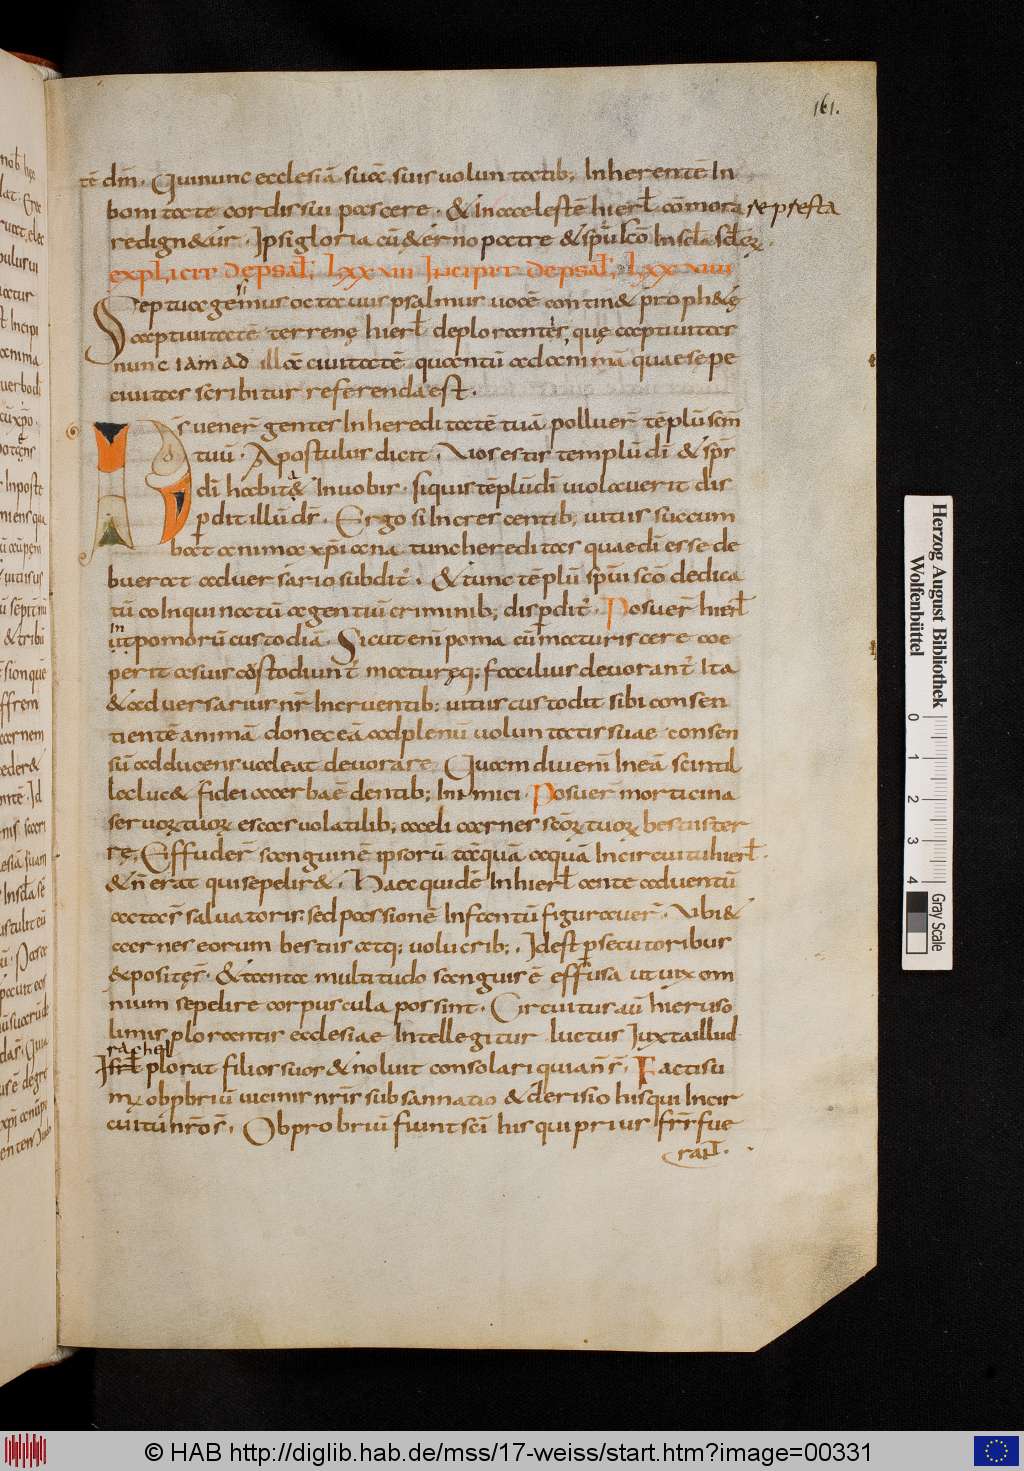 161.
tē dnī. Qui nunc ecclesiā suā suis uoluntatib; Inherentē In
bonitate cordis sui pascere. & in caelestē hierł cōmora repsesta
re dign&ur. Ipsi gloria cū &erno patre & spū scō In scła scłoꝝ
explicit de psal; LXXVIII Incipit de psal; LXXVIIII
Septuagensimus octauus psalmus uocē contin& proph&ę
captiuitatē terrenę hierł deplorantis, quę captiuitas
nunc iam ad illā ciuitatē quantū ad animā quae sepe
ciuitas scribitur referenda est.
Ds̄ uener̄ gentes In hereditatē tuā polluer̄ tēplū scm̄
tuū. Apostulus dicit. Uos estis templū dī & sps̄
dī habitat In uobis. si quis tēplū dī uiolauerit dis
pdit illū ds̄. Ergo si Increscentib; uitiis succum
bat anima xpīana tunc hereditas quae dī esse de
buerat aduersario subdit̄. & tunc tēplū spū scō dedica
tū coInquinatū a gentiū criminib; disperdit̄. Posuer̄ hierł
in
ut pomorū custodiā. Sicut enī poma cū maturiscere coe
perit a suis custodiunt̄ maturęq; facilius deuorant̄ Ita
& aduersarius nr̄ Incruentib; uitiis custodit sibi consen
tientē animā donec eā ad plenū uoluntatis suae consen
sū adducens ualeat deuorare. Quam diu enī In eā scintil
le luc& fidei acerbaē dentib; Inimici. Posuer̄ morticina
seruoꝝ tuoꝝ escas uolatilib; caeli carnes scōꝝ tuoꝝ bestiis ter
rę. Effuder̄ sanguinē ipsorū tāquā aquā In circuitu hierł.
& n̄ erat qui sepelir&. Haec quidē In hierł ante aduentū
actas saluatoris sed passionē Infantū figurauer̄. Ubi &
carnes eorum bestiis atq; uolucrib; Id est psecutoribus
expositę s̄. & tanta multitudo sanguis ē effusa ut uix om
nium sepelire corpuscula possint. Circuitus aū hieruso
limis plorantis ecclesiae Intellegitur luctus Iuxta illud
rachel
plorat filios suos & noluit consolari quia n̄ s̄. Facti su
mꝫ obpbriū uicinis nr̄is subsannatio & derisio his qui In cir
cuitū nr̄o s̄. Obprobriū fiunt scī his qui prius frs̄ fue
rant.
Herzog August Bibliothek
Wolfenbüttel
0 1 2 3 4
Gray Scale
© HAB http://diglib.hab.de/mss/17-weiss/start.htm?image=00331